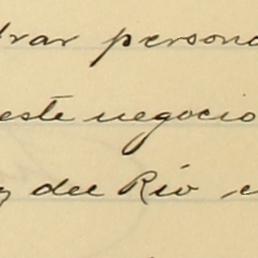 trar persona
este negocio
y del Río